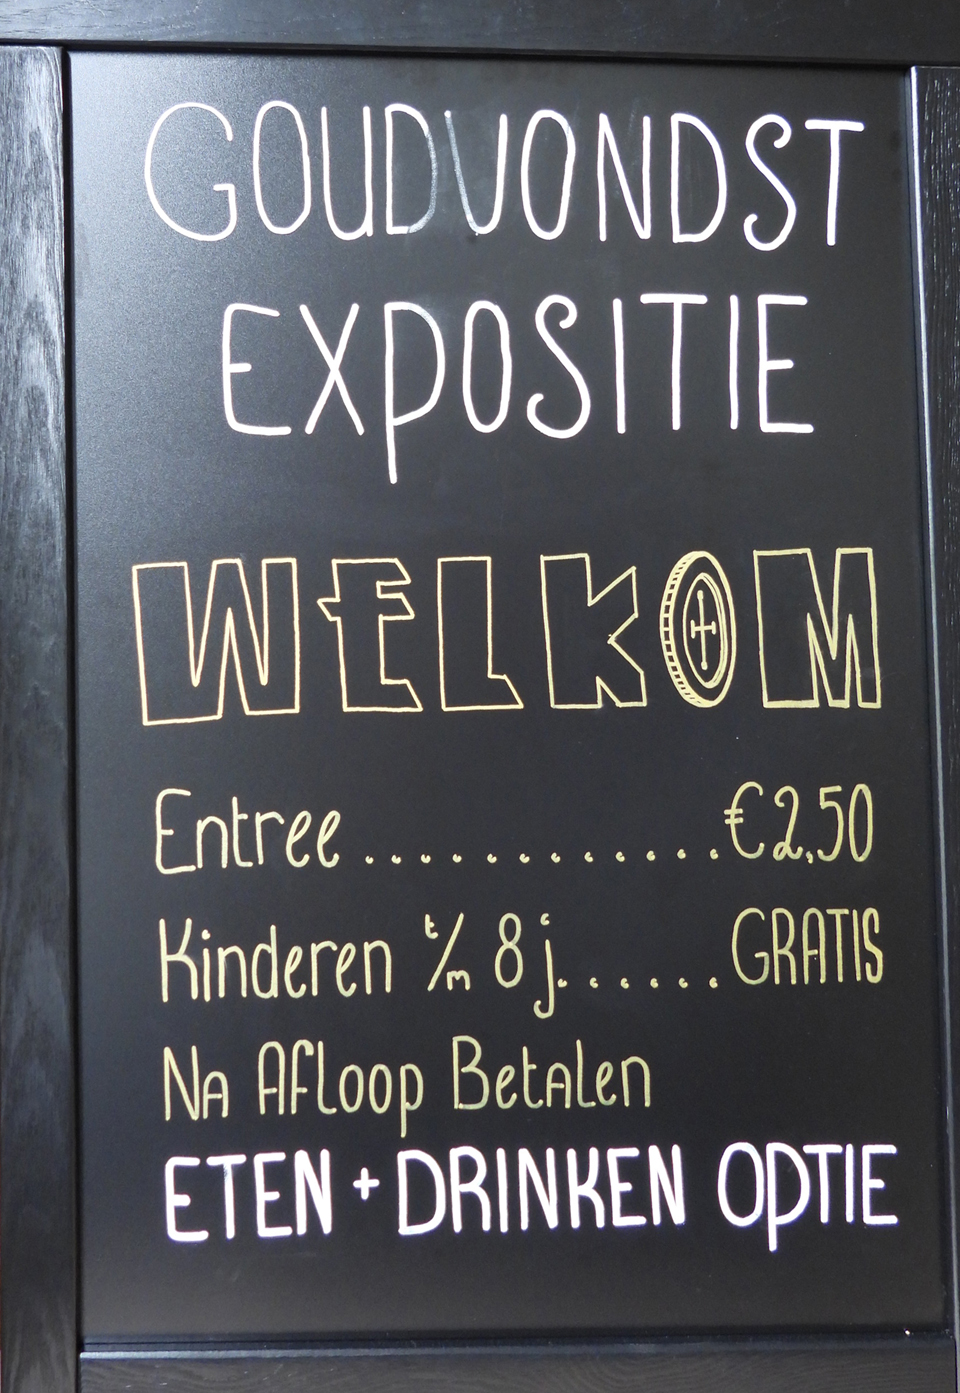 GOUDVONDST
EXPOSITIE
WELKOM
Entree.............€2,50
Kinderen t/m 8 j.......GRATIS
Na Afloop Betalen
ETEN + DRINKEN OPTIE